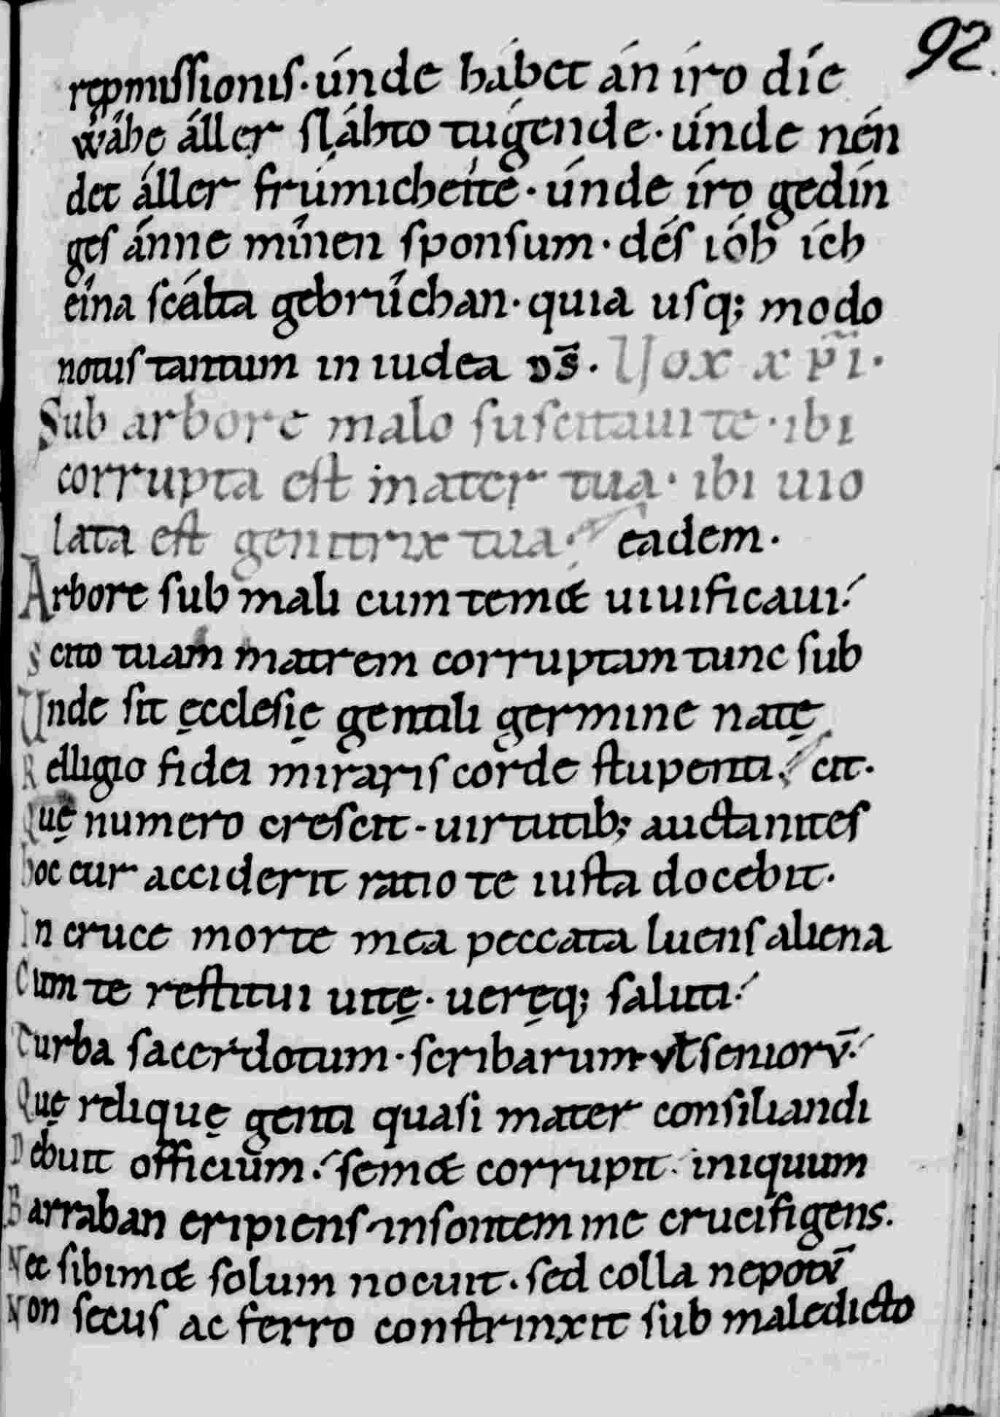 92
rep̄missionis· únde hábet án íro díe
wábe áller sláhto túgende· únde nén
det áller frúmicheite· únde íro gedín
ges ánne mínen sponsum· dés ióh ích
eína scálta gebrûchan· quia usq; modo
notus tantum in iudea d̄s· Vox xp̄i·
Sub arbore malo suscitaui te· ibi
corrupta est mater tua· ibi uio
lata est genitrix tua· eadem·
Arbore sub mali cum temet uiuificaui·
Scito tuam matrem corruptam tunc sub
Vnde sit ęcclesię gentili germine natę
Relligio fidei miraris corde stupenti· eit·
Quę numero crescit· uirtutib; auctanites
hoc cur acciderit ratio te iusta docebit·
In cruce morte mea peccata luens aliena
Cum te restitui uitę· ueręq; saluti·
Turba sacerdotum· scribarum vt̄ seniorv̄·
Quę reliquę genti quasi mater consiliandi
Debuit officium· semet corrupit· iniquum
Barraban eripiens· insontem me crucifigens·
Nec sibimet solum nocuit· sed colla nepotū
Non secus ac ferro constrinxit sub maledicto